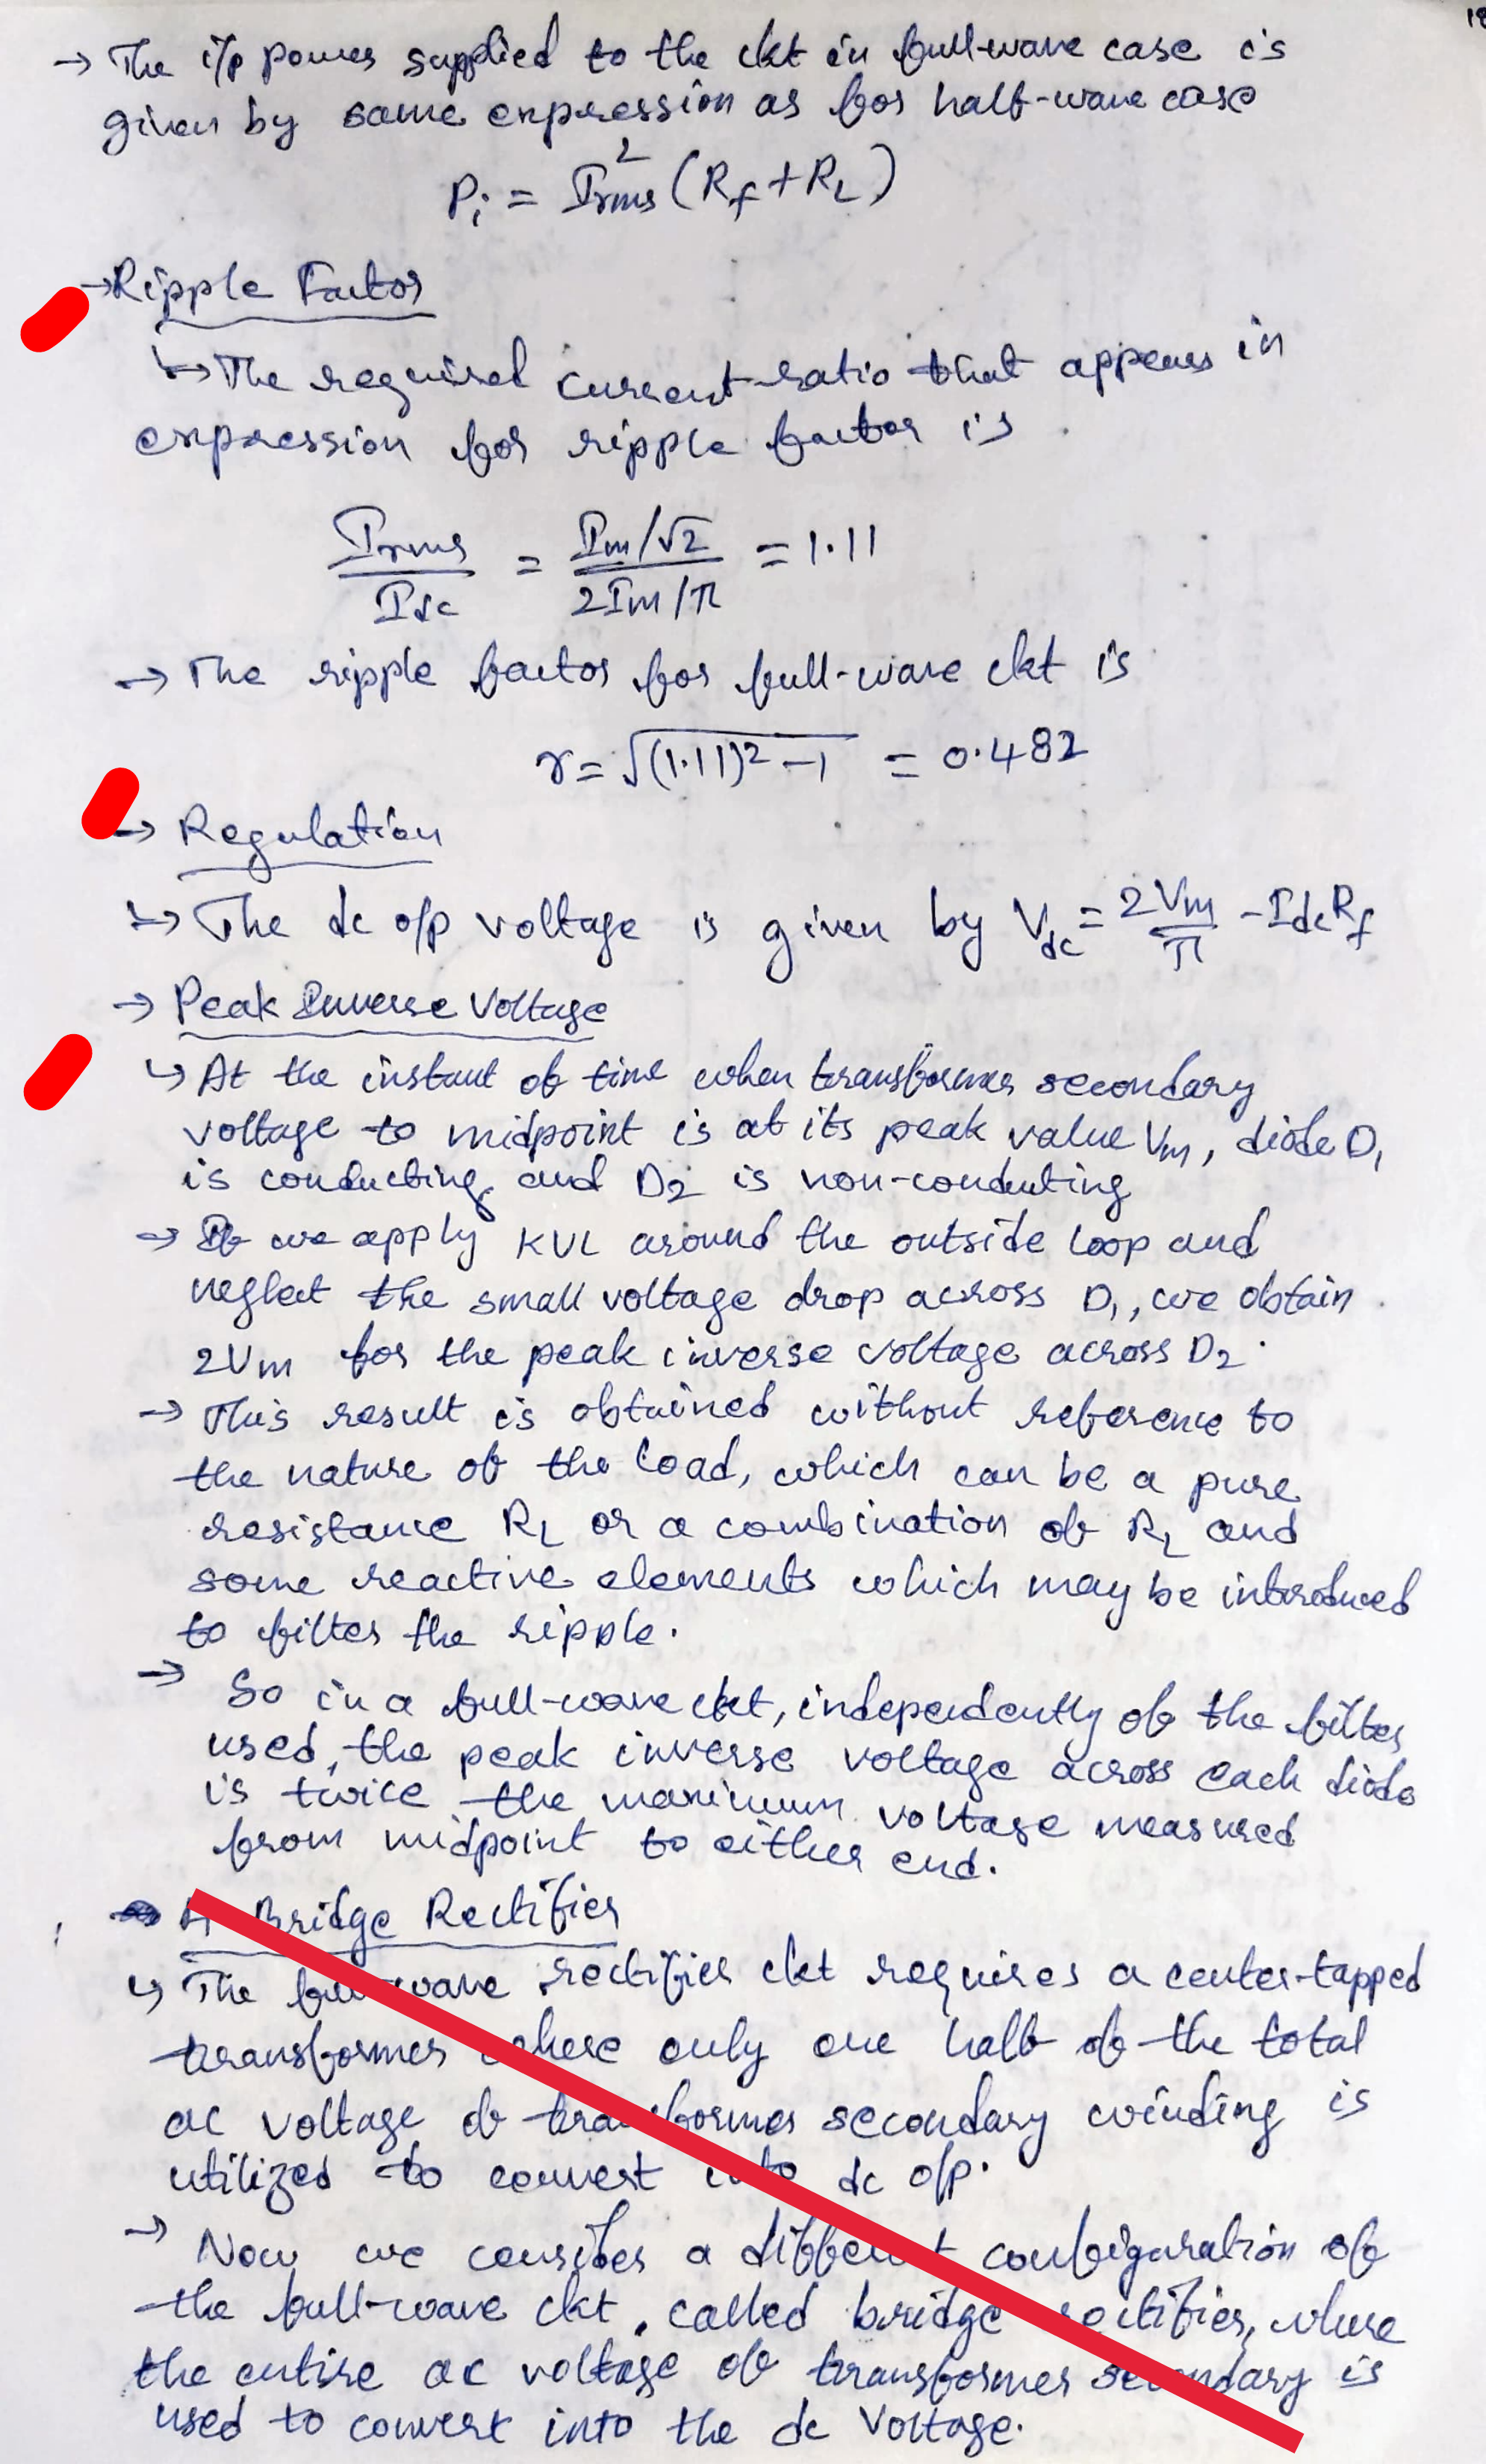 → The i/p power supplied to the ckt in full-wave case is
given by same expression as for half-wave case
Pi = Irms² (Rf + RL)
→ Ripple Factor
↳ The required current ratio that appears in
expression for ripple factor is
Irms / Idc = (Im/√2) / (2Im/π) = 1.11
→ The ripple factor for full-wave ckt is
r = √((1.11)² - 1) = 0.482
→ Regulation
↳ The dc o/p voltage is given by Vdc = 2Vm/π - Idc Rf
→ Peak Inverse Voltage
↳ At the instant of time when transformer secondary
voltage to midpoint is at its peak value Vm, diode D1
is conducting and D2 is non-conducting
→ If we apply KVL around the outside loop and
neglect the small voltage drop across D1, we obtain
2Vm for the peak inverse voltage across D2.
→ This result is obtained without reference to
the nature of the load, which can be a pure
resistance RL or a combination of RL and
some reactive elements which may be introduced
to filter the ripple.
→ So in a full-wave ckt, independently of the filter
used, the peak inverse voltage across each diode
is twice the maximum voltage measured
from midpoint to either end.
A Bridge Rectifier
↳ The full-wave rectifier ckt requires a center-tapped
transformer where only one half of the total
ac voltage of transformer secondary winding is
utilized to convert into dc o/p.
→ Now we consider a different configuration of
the full-wave ckt, called bridge rectifier, where
the entire ac voltage of transformer secondary is
used to convert into the dc voltage.